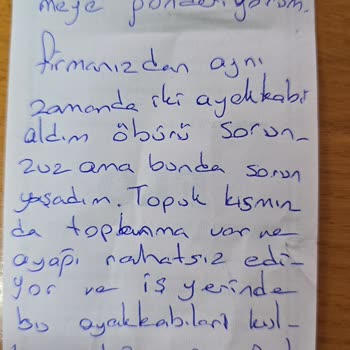 meye gönderiyorum.
firmanızdan aynı
zamanda iki ayakkabı
aldım öbürü sorun_
zuz ama bunda sorun
yaşadım. Topuk kısmın
da toplanma var ve
ayağı rahatsız edi-
yor ve iş yerinde
bu ayakkabıları kul-